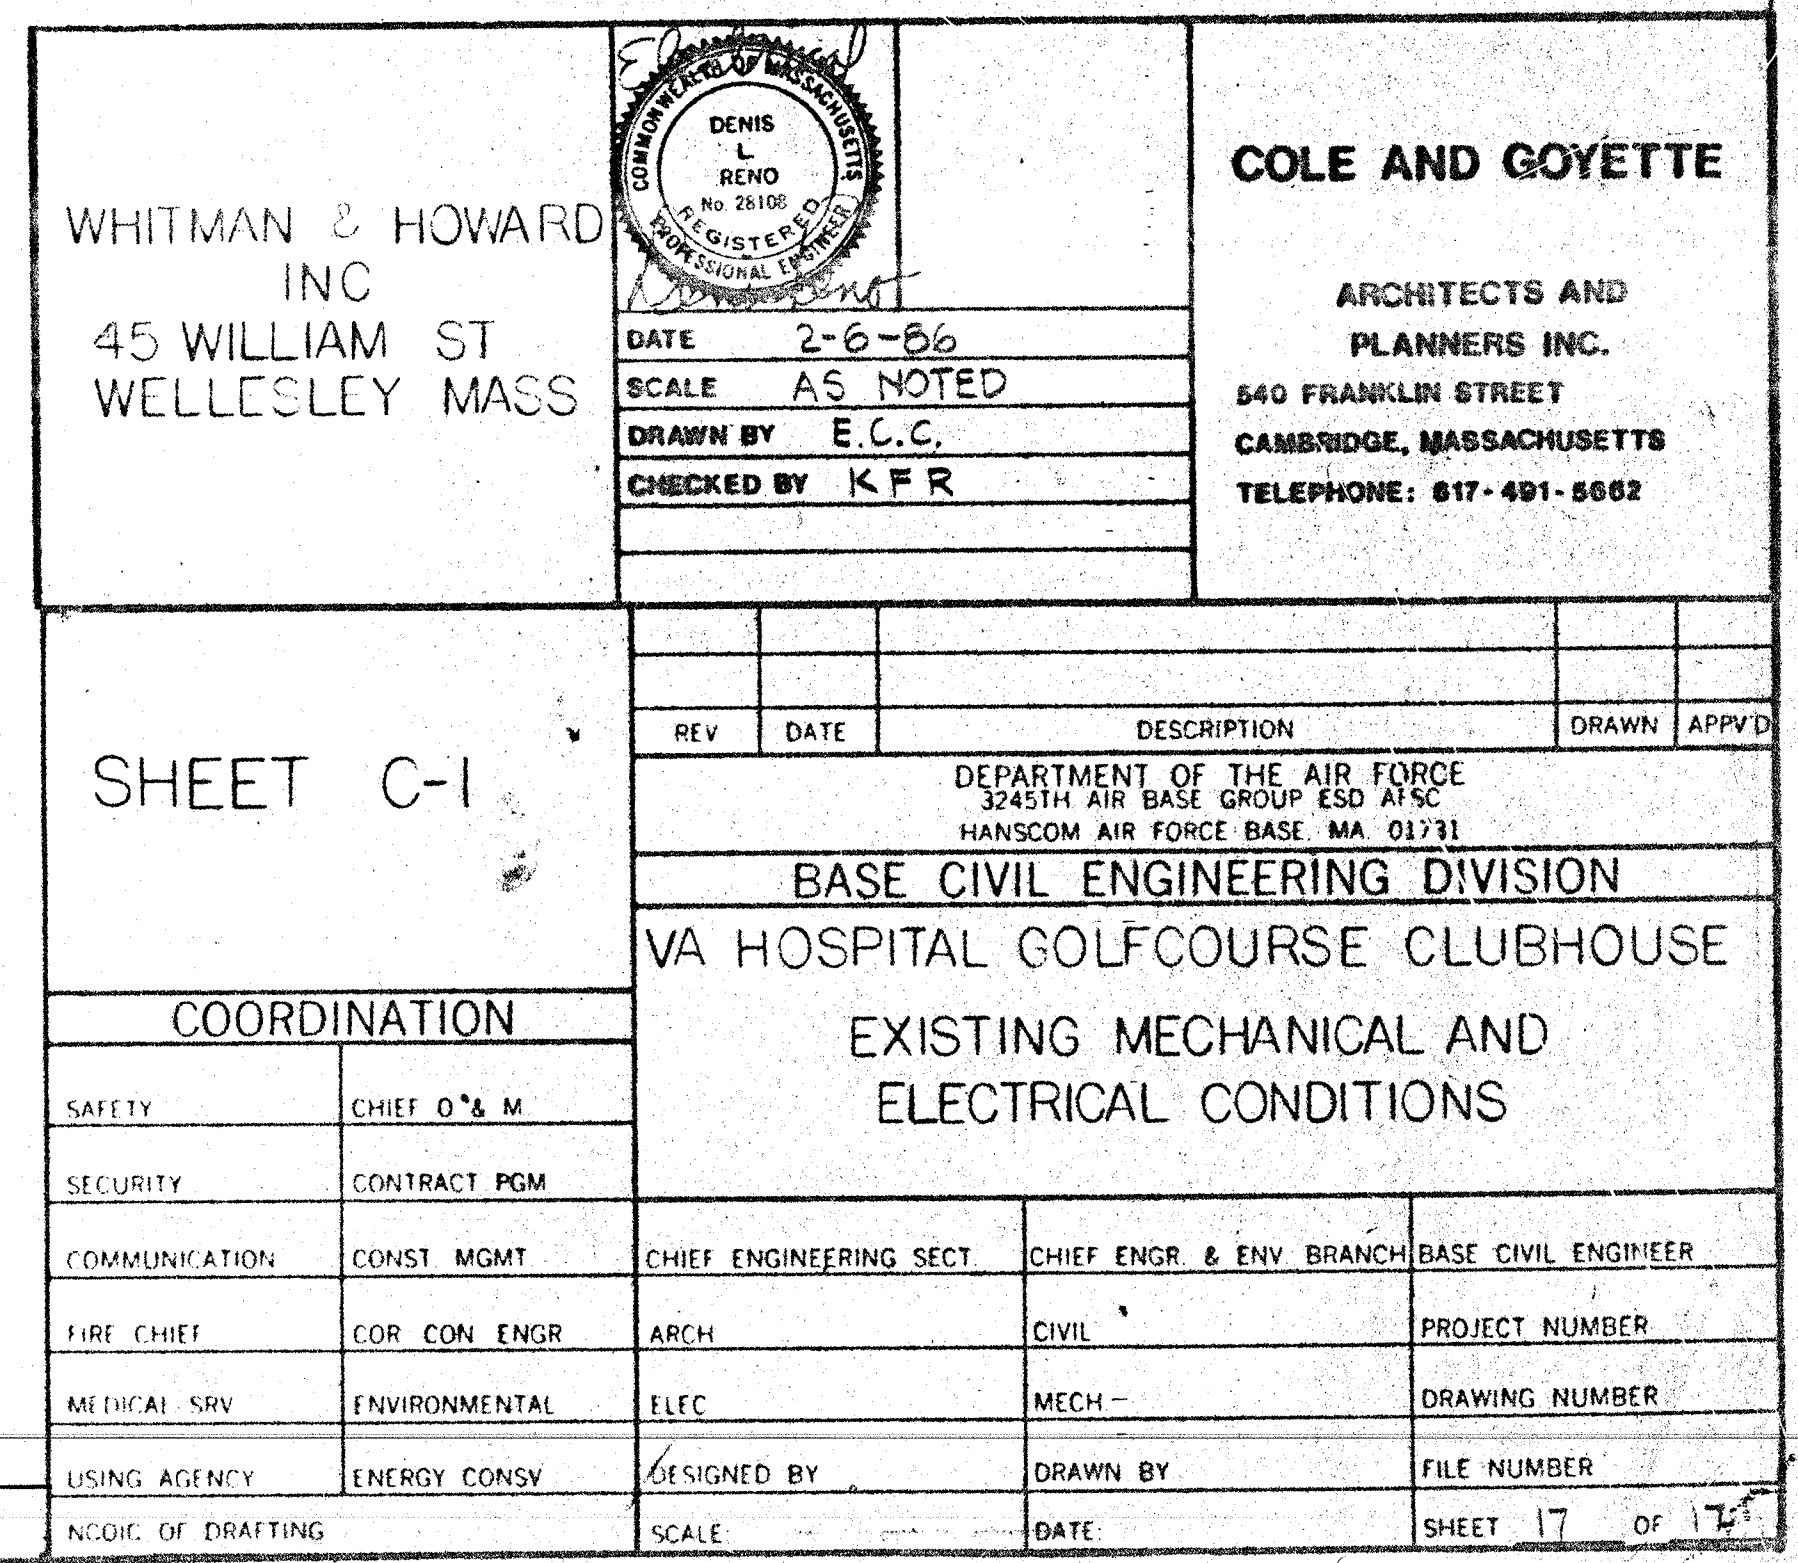 WHITMAN & HOWARD
INC
45 WILLIAM ST
WELLESLEY MASS
Electrical
COMMONWEALTH OF MASSACHUSETTS
DENIS
L.
RENO
No. 28108
REGISTERED
PROFESSIONAL ENGINEER
Denis Reno
DATE 2-6-86
SCALE AS NOTED
DRAWN BY E.C.C.
CHECKED BY KFR
COLE AND GOYETTE
ARCHITECTS AND
PLANNERS INC.
540 FRANKLIN STREET
CAMBRIDGE, MASSACHUSETTS
TELEPHONE: 617-491-5662
SHEET C-1
REV DATE DESCRIPTION DRAWN APPV'D
DEPARTMENT OF THE AIR FORCE
3245TH AIR BASE GROUP ESD AFSC
HANSCOM AIR FORCE BASE, MA. 01731
BASE CIVIL ENGINEERING DIVISION
VA HOSPITAL GOLFCOURSE CLUBHOUSE
EXISTING MECHANICAL AND
ELECTRICAL CONDITIONS
COORDINATION
SAFETY CHIEF O & M
SECURITY CONTRACT PGM
COMMUNICATION CONST MGMT
FIRE CHIEF COR CON ENGR
MEDICAL SRV ENVIRONMENTAL
USING AGENCY ENERGY CONSV
NCOIC OF DRAFTING
CHIEF ENGINEERING SECT. CHIEF ENGR. & ENV. BRANCH BASE CIVIL ENGINEER
ARCH CIVIL PROJECT NUMBER
ELEC MECH - DRAWING NUMBER
DESIGNED BY DRAWN BY FILE NUMBER
SCALE: DATE: SHEET 17 OF 17